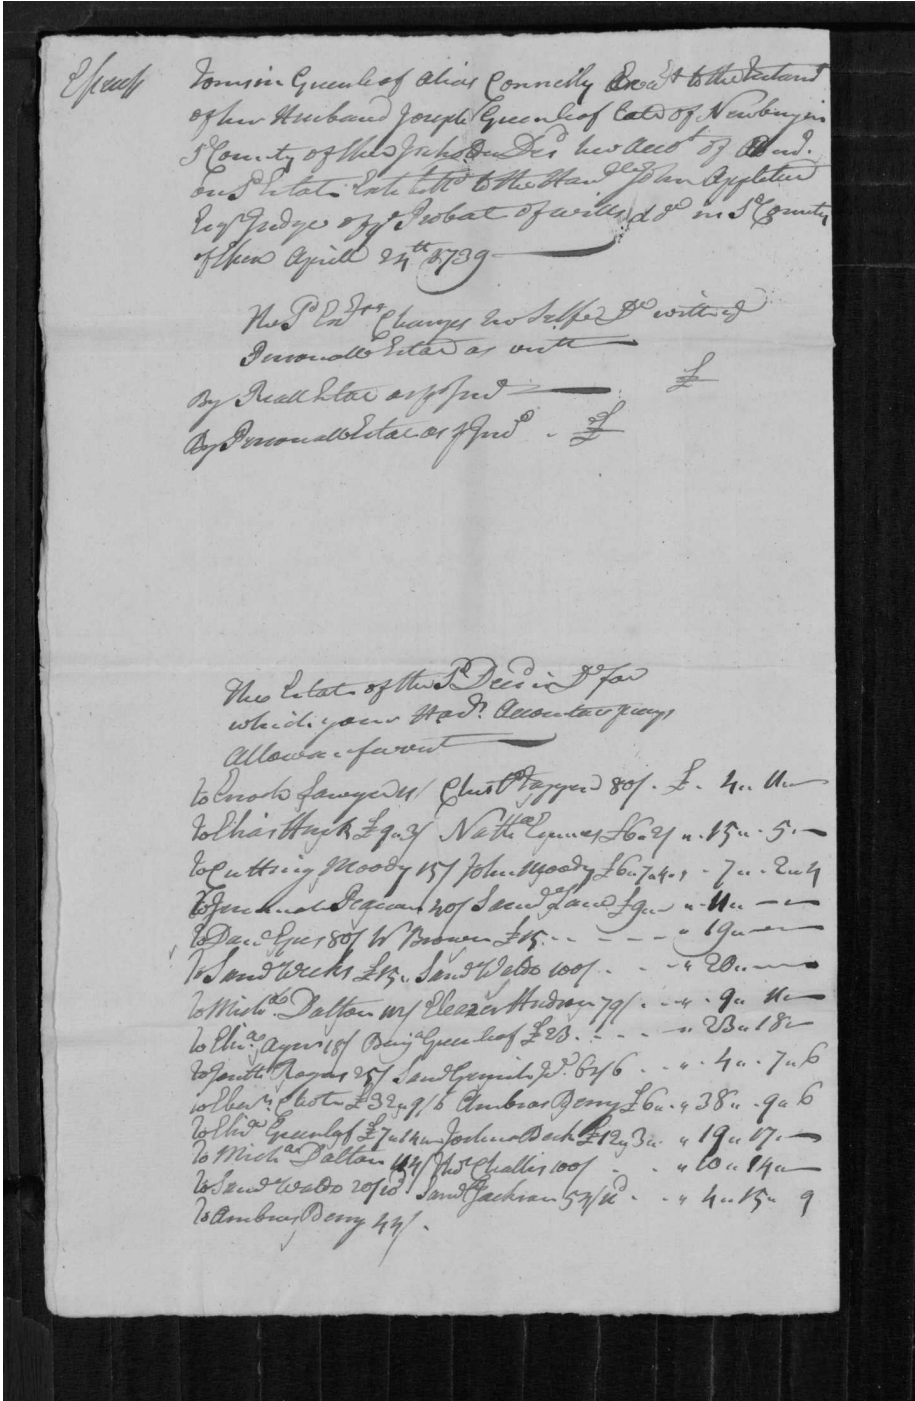 Essex ss
Tomsin Greenleaf Alias Connelly Exec.t to the Estand
of her Husband Joseph Greenleaf Late of Newbury in
s.d County of Essex Dec.d her Acco.t of Adm.
on s.d Estate Exhibitted to the Hon.ble John Appleton
Esq.r Judge of y.e Probat of wills &c in s.d County
of Essex Aprill 24th 1739
The s.d Charges her Selfe D.r with y.e
Personall Estate as
By Reall Estate as p.r Inv.d £
By Personall Estate as p.r Inv.d £
The Estate of the s.d Dec.d is D.r for
which your Hon.rs Accountant prays
Allowance
to Enoch Sawyer Tappen 80/ £ 4 " 11 "
To Elias Huck £9 " 3/ Nath.l £6 " 2/ " 15 " 5 "
To Cutting Moody 15/ John Moody £6 " 7 " 4 " 7 " 2 " 4
To 40/ Sam.l £9 " " 11 "
To Dan.l 80/ W.m Brown £15 " 19 "
To Sam.l Weeks £15 " Sam.l Waldo 100/ " 20 "
To Mich.l Dalton Eleazer Hudson 79/ " 9 " 11 "
To Eli.a Ayers 18/ Benj.a Greenleaf £23 " 23 " 18 "
To Rogers 25/ Sam.l Gerrish 62/6 " 4 " 7 " 6
to Eben.r Choate £32 " 9/6 Ambros Berry £6 " " 38 " 9 " 6
To Greenleaf £7 " 14 " Joshua Beck £12 " 3 " " 19 " 17 "
To Mich.l Dalton 114/ Challis 100/ " 10 " 14 "
To Sam.l Waldo Sam.l Jackson " 4 " 15 " 9
To Ambros Berry 44/